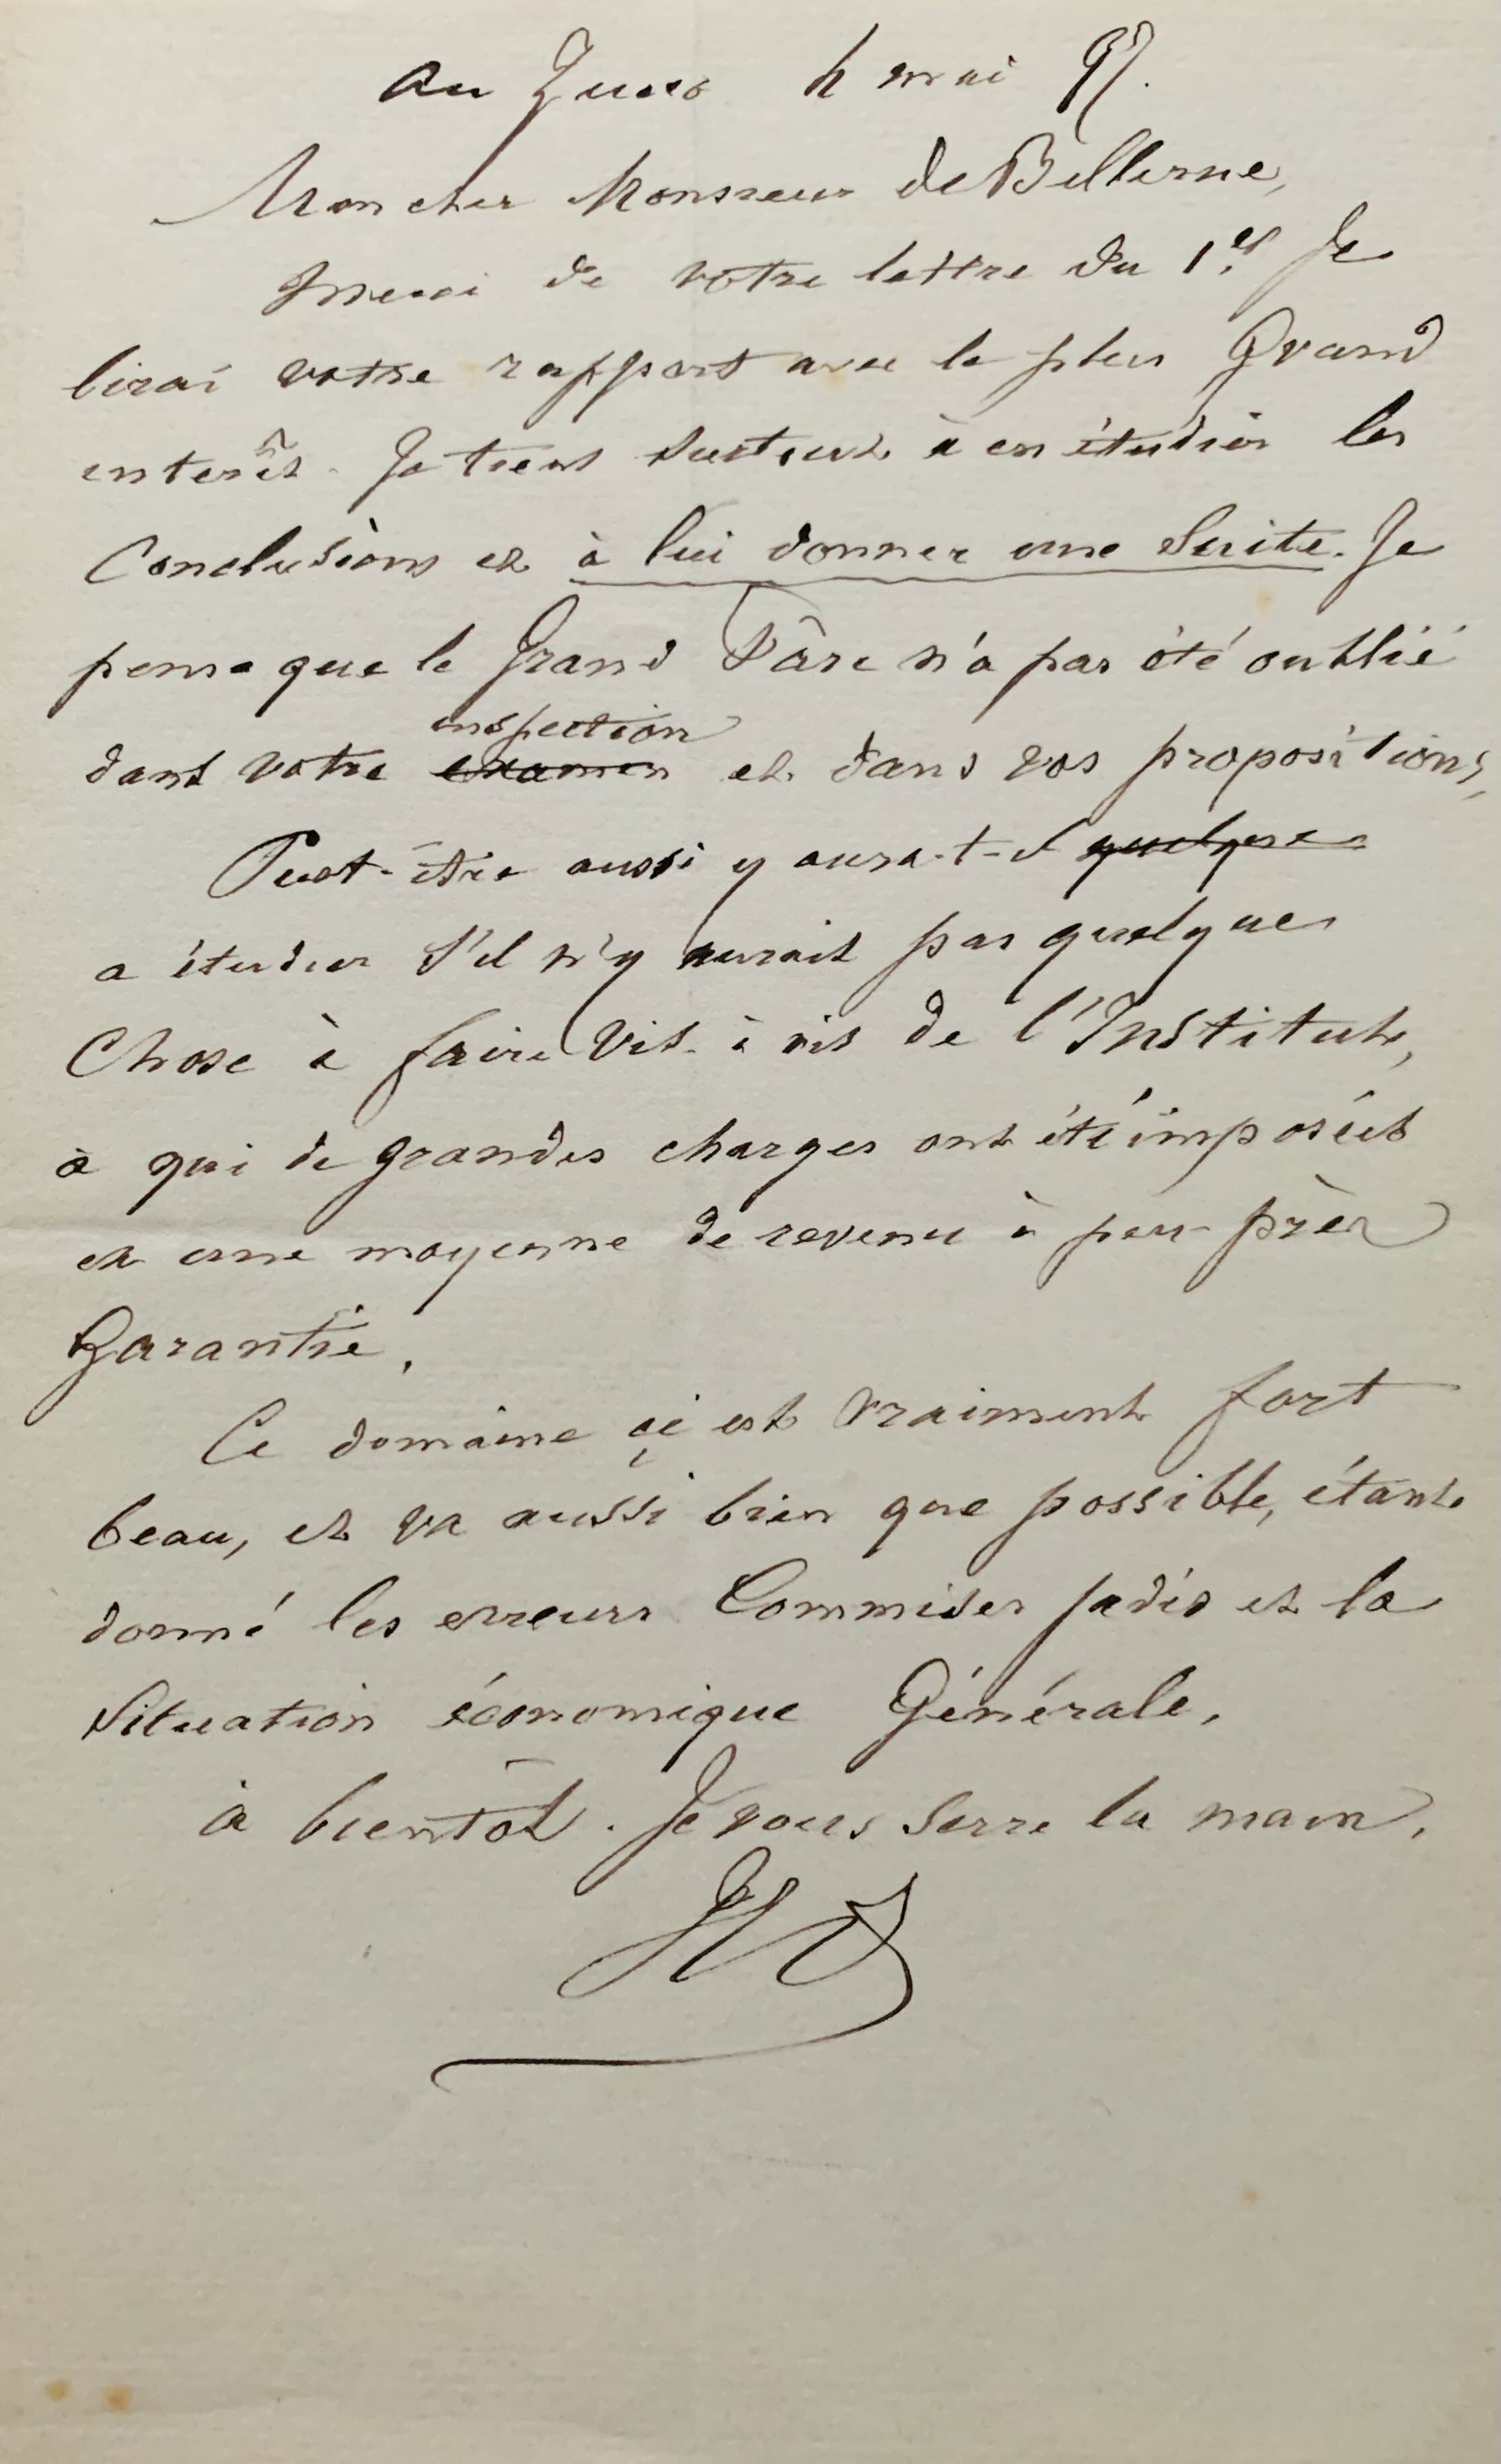 au Zucco 4 mai 97.
Mon cher Monsieur de Bellerne,
Merci de votre lettre du 1er. Je
lirai votre rapport avec le plus Grand
interêt. Je tiens surtout à en étudier les
Conclusions et à lui donner une Suite. Je
pense que le Grand Parc n'a pas été oublié
inspection
dans votre examen et dans vos propositions,
Peut-être aussi y aura-t-il quelque
a étudier s'il n'y aurait pas quelque
Chose à faire vis-à vis de l'Institut,
à qui de grandes charges ont été imposées
et une moyenne de revenu à peu-près
Garantie.
Ce domaine çi est vraiment fort
beau, et va aussi bien que possible, étant
donné les erreurs Commises jadis et la
Situation économique Générale.
à bientôt. Je vous serre la main.